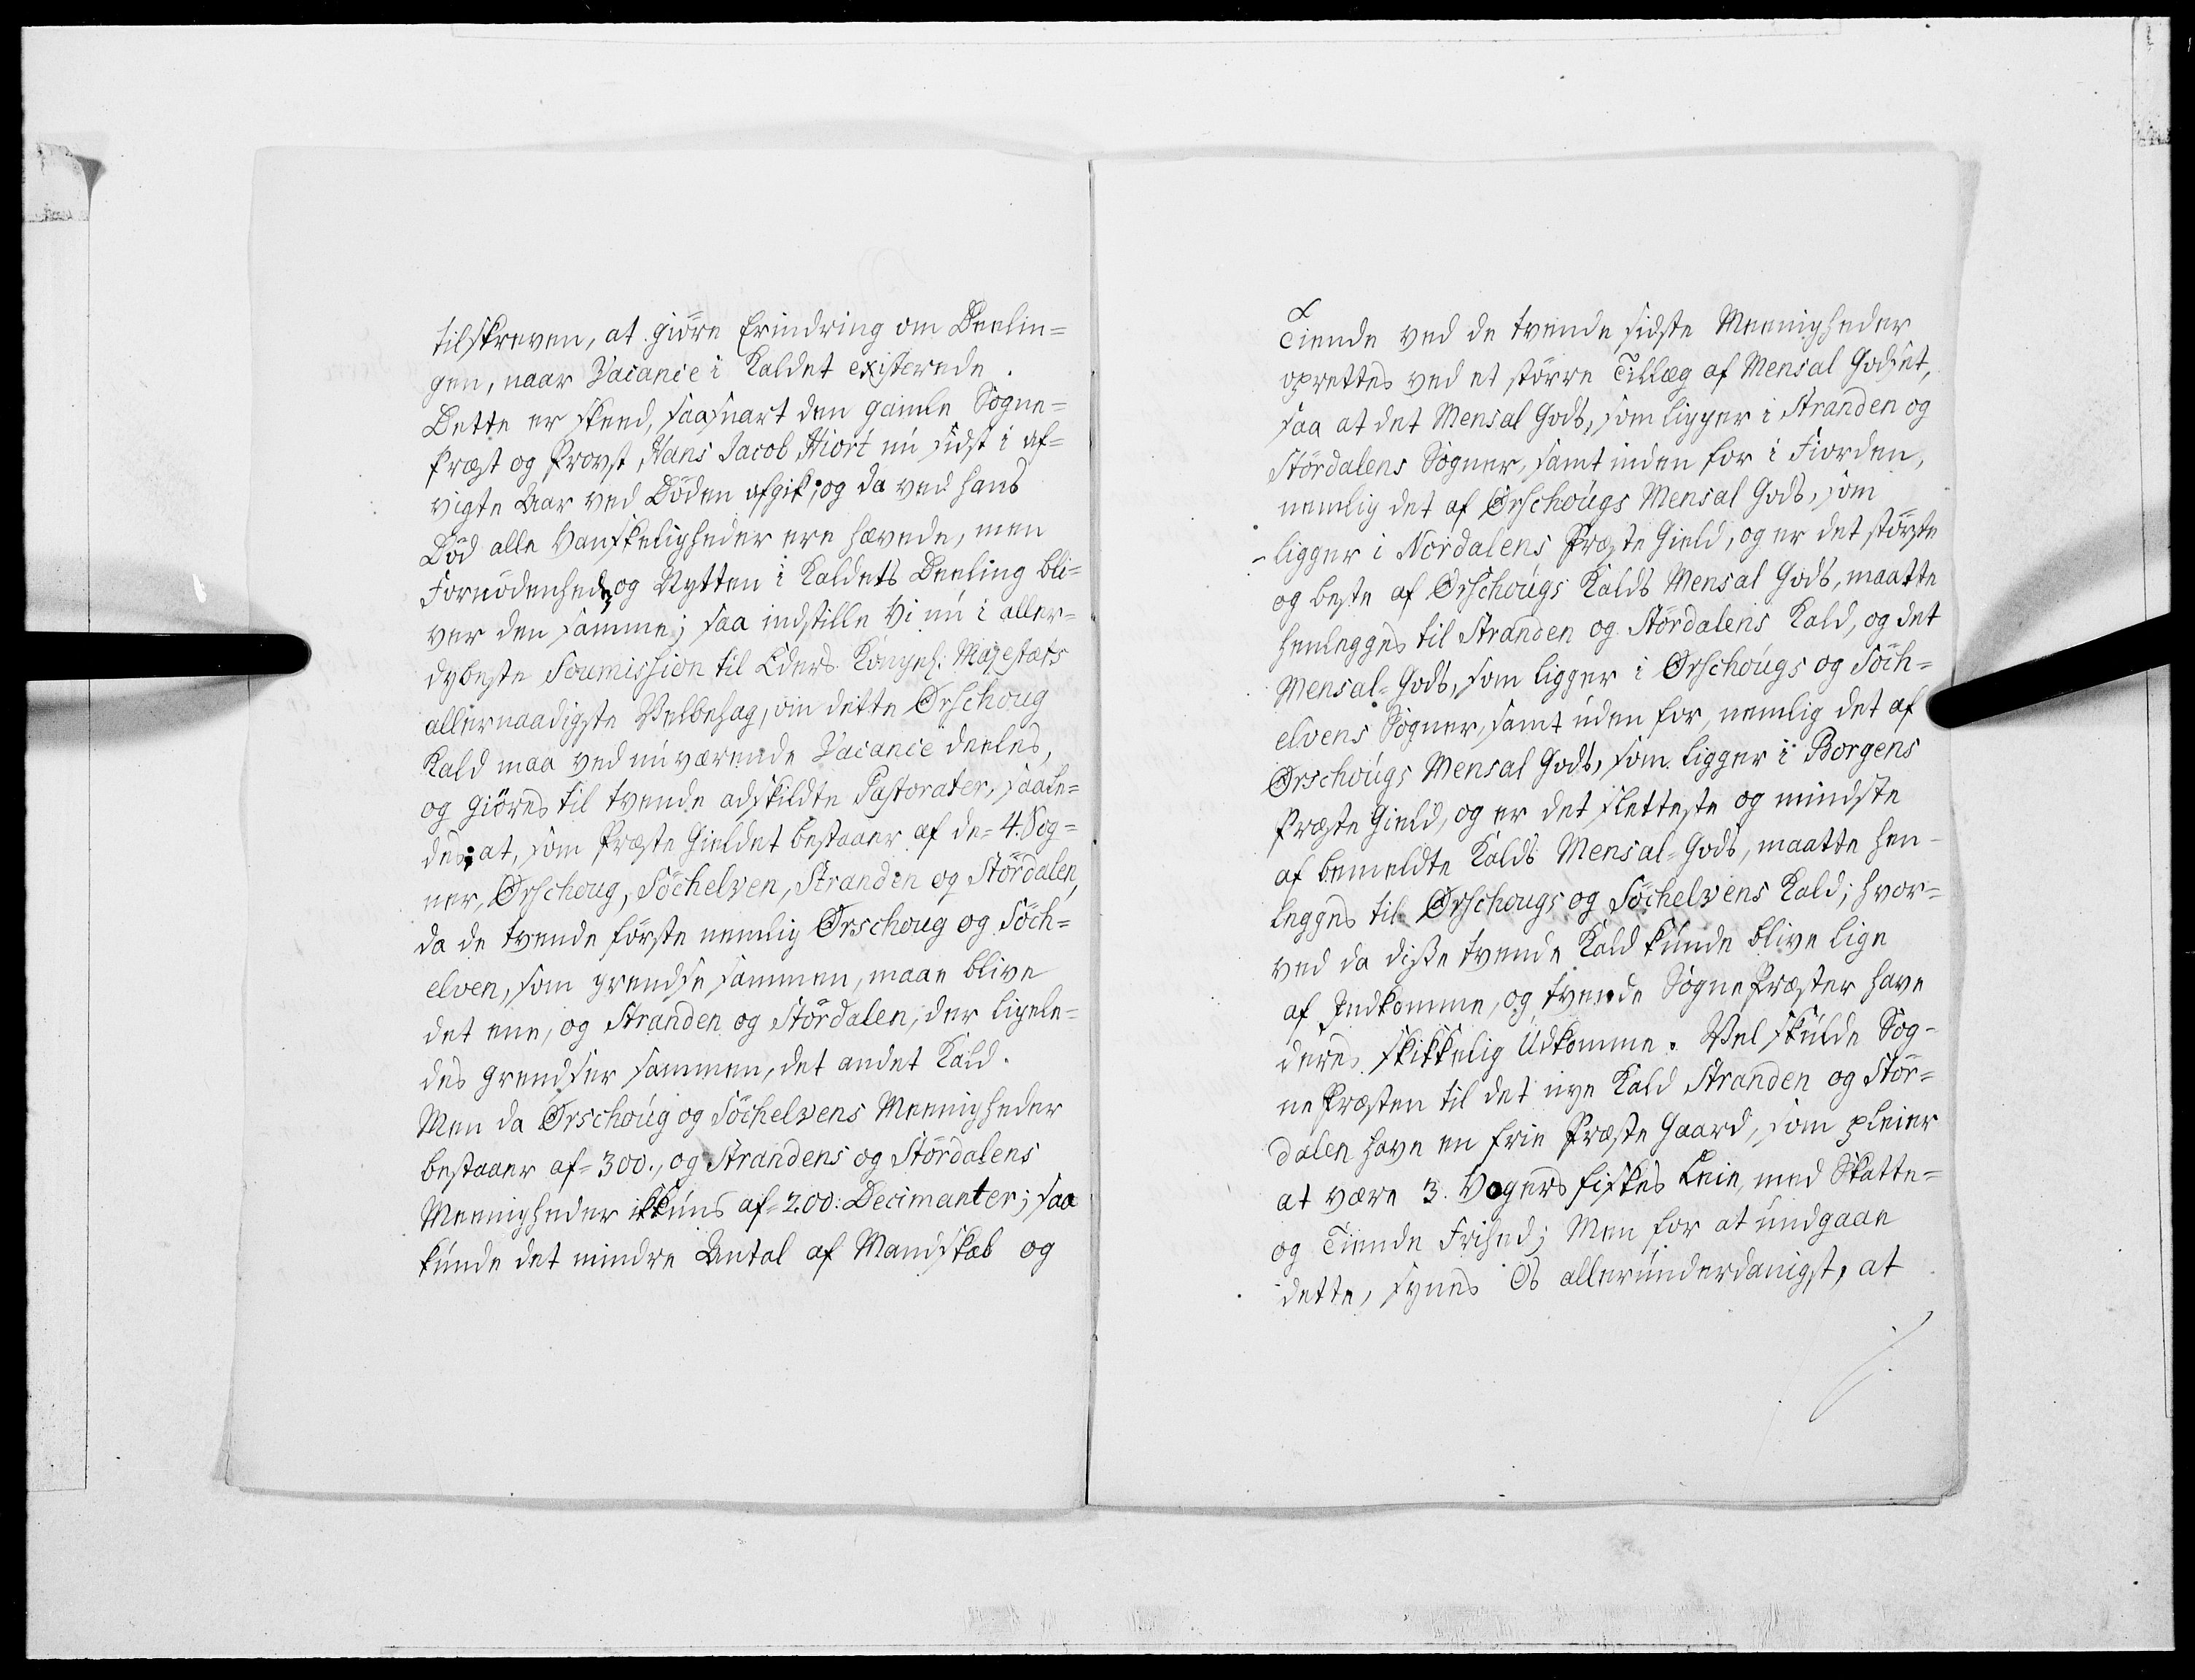 tilskreven, at giöre Erindring om Deelin=
gen, naar Vacance i Kaldet existerede.
Dette er skeed, saasnart den gamle Sogne=
Præst og Provst Hans Jacob Hiort nú sidst i af=
vigte Aar ved Döden afgik; og da ved hans
Död alle Vanskeligheder ere hævede, men
Fornödenhed og Nytten i Kaldets Deeling bli=
ver den samme; saa indstille Vi nú i aller=
dybeste Soumission til Eders Kongel: Majestæts
allernaadigste Velbehag, om dette Ørschoug
Kald maa ved núværende Vacance deeles,
og giöres til tvende adskildte Pastorater, saale=
des, at, som Præste Gieldet bestaaer af de 4. Sog=
ner, Ørschoug, Söchelven, Stranden og Stördalen,
da de tvende förste nemlig Ørschoug og Söch=
elven, som grendse sammen, maae blive
det ene, og Stranden og Stördalen, der ligele=
des grendser sammen, det andet Kald.
Men da Ørschoúg og Söchelvens Meenigheder
bestaaer af 300., og Strandens og Stördalens
Meenigheder ikkúns af 200: Decimanter; saa
kúnde det mindre Antal af Mandskab og
Tiende ved de tvende sidste Meenigheder
oprettes ved et större Tillæg af Mensal Godset,
saa at det Mensal Gods, som ligger i Stranden og
Stördalens Sogner, samt inden for i Fiorden,
nemlig det af Ørschoúgs Mensal Gods, som
ligger i Nordalens Præste Gield, og er det störste
og beste af Ørschoúgs Kalds Mensal Gods, maatte
henlegges til Stranden og Stördalens Kald, og det
Mensal=Gods, som ligger i Ørschoúgs og Söch=
elvens Sogner, samt úden for, nemlig det af
Ørschoúgs Mensal Gods, som ligger i Borgens
Præste Gield, og er det sletteste og mindste
af bemeldte Kalds Mensal=Gods, maatte hen-
legges til Ørschougs og Söchelvens Kald; hvor=
ved da disse tvende Kald kúnde blive lige
af Indkomme, og tvende Sogne Præster have
deres skikkelig Udkomme. Vel skúlde Sog-
ne Præsten til det nye Kald Stranden og Stör=
dalen have en frie Præste Gaard, som pleier
at være 3. Vogers fiskes Leie, med Skatte=
og Tiende Frihed; Men for at úndgaae
dette, synes Os allerúnderdanigst, at